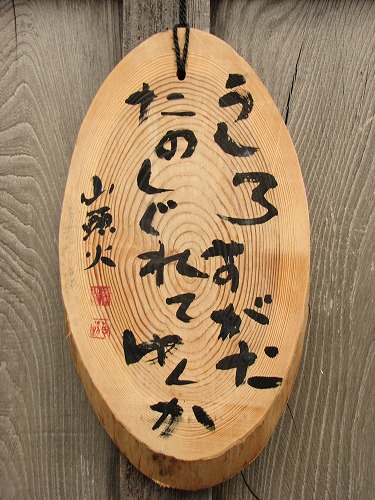 うしろすがた
たのしぐれてゆくか
山頭火